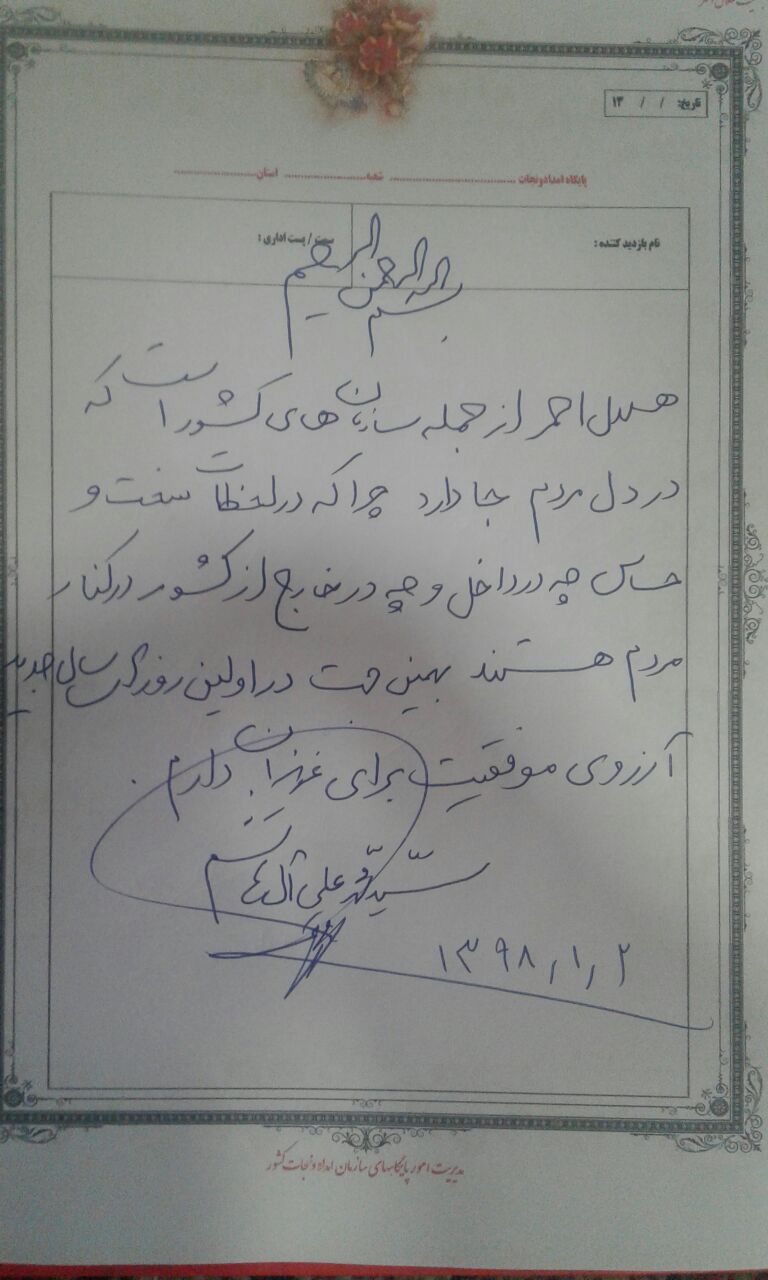 تاریخ: / / ۱۳
پایگاه امداد و نجات ........................ شعبه ................ استان ................
نام بازدید کننده :
سمت / پست اداری :
بسم الله الرحمن الرحیم
هلال احمر از جمله سازمان های کشور است که
در دل مردم جا دارد چرا که در لحظات سخت و
حساس چه در داخل و چه در خارج از کشور در کنار
مردم هستند بهمین جهت در اولین روزهای سال جدید
آرزوی موفقیت برای عزیزان دارم
سید محمد علی آل هاشم
۱۳۹۸/۱/۲
مدیریت امور پایگاههای سازمان امداد و نجات کشور